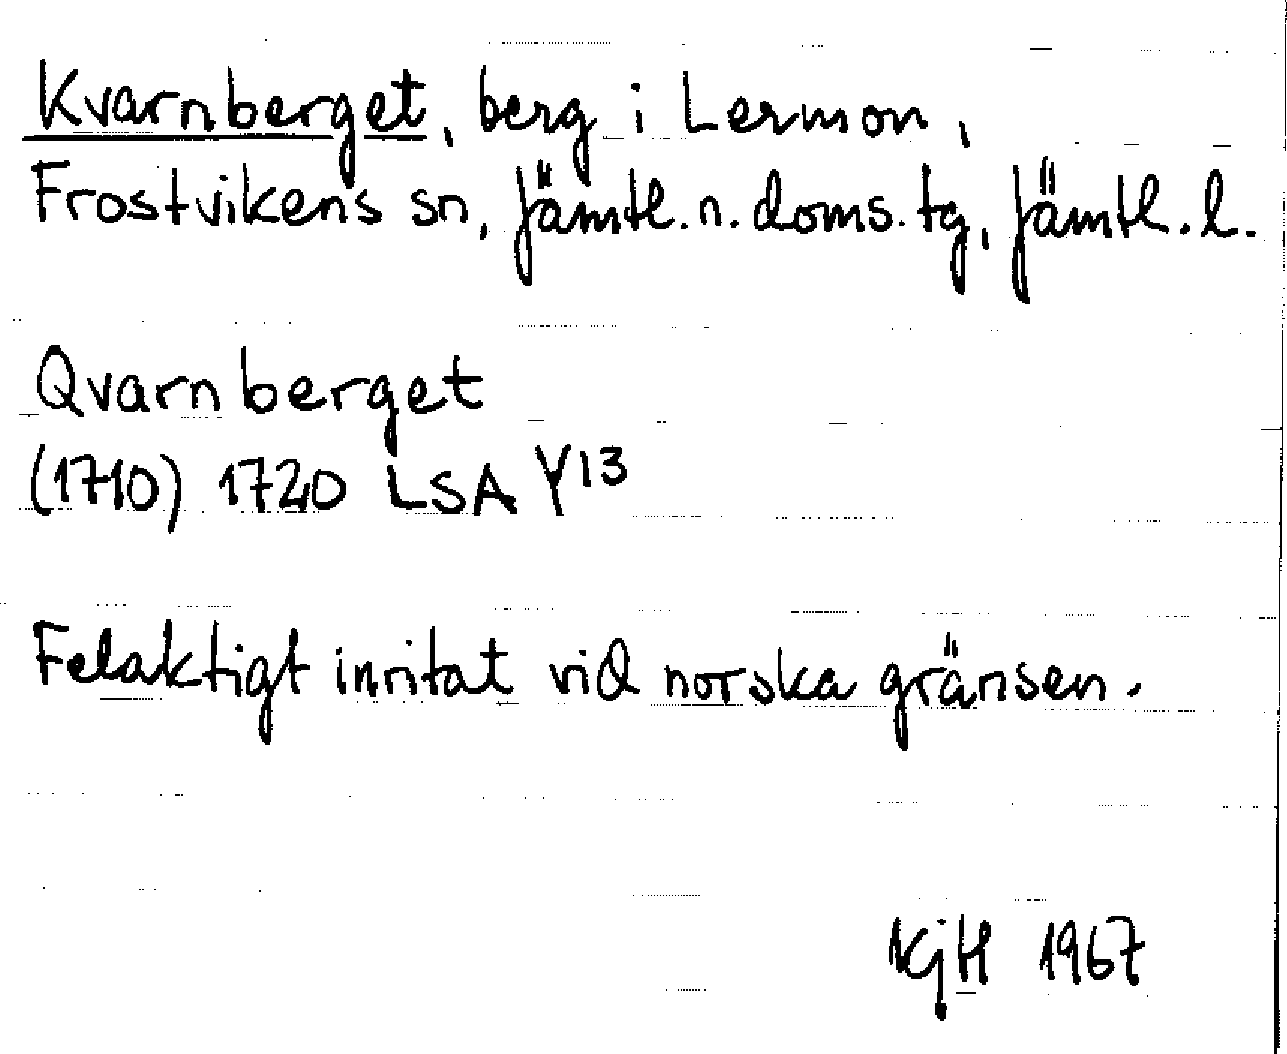 Kvarnberget, berg i Lermon,
Frostvikens sn, Jämtl. n. doms. tg, Jämtl. l.
Qvarnberget
(1710) 1720 LSA Y13
Felaktigt inritat vid norska gränsen.
KjH 1967